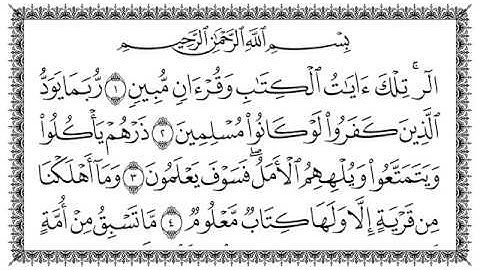 بِسْمِ اللَّهِ الرَّحْمَٰنِ الرَّحِيمِ
الٓر ۚ تِلْكَ ءَايَاتُ الْكِتَابِ وَقُرْءَانٍ مُّبِينٍ ١ رُّبَمَا يَوَدُّ
الَّذِينَ كَفَرُوا لَوْ كَانُوا مُسْلِمِينَ ٢ ذَرْهُمْ يَأْكُلُوا
وَيَتَمَتَّعُوا وَيُلْهِهِمُ الْأَمَلُ ۖ فَسَوْفَ يَعْلَمُونَ ٣ وَمَا أَهْلَكْنَا
مِن قَرْيَةٍ إِلَّا وَلَهَا كِتَابٌ مَّعْلُومٌ ٤ مَّا تَسْبِقُ مِنْ أُمَّةٍ